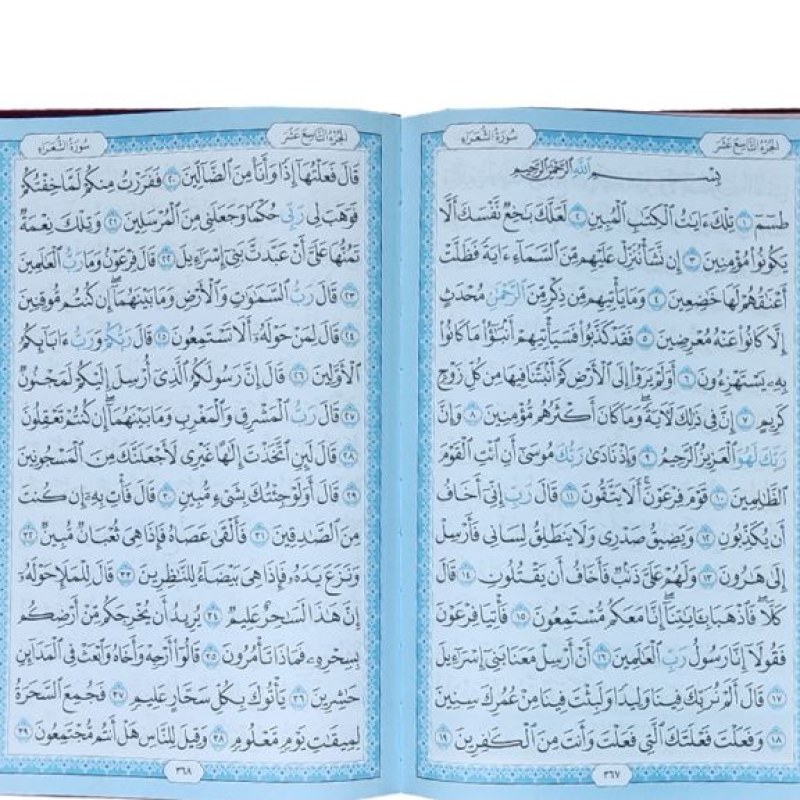 الجُزْءُ التَّاسِعَ عَشَرَ
سُورَةُ الشُّعَرَاءِ
بِسْمِ ٱللَّهِ ٱلرَّحْمَٰنِ ٱلرَّحِيمِ
طسٓمٓ ١ تِلْكَ ءَايَٰتُ ٱلْكِتَٰبِ ٱلْمُبِينِ ٢ لَعَلَّكَ بَٰخِعٌ نَّفْسَكَ أَلَّا
يَكُونُوا۟ مُؤْمِنِينَ ٣ إِن نَّشَأْ نُنَزِّلْ عَلَيْهِم مِّنَ ٱلسَّمَآءِ ءَايَةً فَظَلَّتْ
أَعْنَٰقُهُمْ لَهَا خَٰضِعِينَ ٤ وَمَا يَأْتِيهِم مِّن ذِكْرٍ مِّنَ ٱلرَّحْمَٰنِ مُحْدَثٍ
إِلَّا كَانُوا۟ عَنْهُ مُعْرِضِينَ ٥ فَقَدْ كَذَّبُوا۟ فَسَيَأْتِيهِمْ أَنۢبَٰٓؤُا۟ مَا كَانُوا۟
بِهِۦ يَسْتَهْزِءُونَ ٦ أَوَلَمْ يَرَوْا۟ إِلَى ٱلْأَرْضِ كَمْ أَنۢبَتْنَا فِيهَا مِن كُلِّ زَوْجٍ
كَرِيمٍ ٧ إِنَّ فِى ذَٰلِكَ لَءَايَةً ۖ وَمَا كَانَ أَكْثَرُهُم مُّؤْمِنِينَ ٨ وَإِنَّ
رَبَّكَ لَهُوَ ٱلْعَزِيزُ ٱلرَّحِيمُ ٩ وَإِذْ نَادَىٰ رَبُّكَ مُوسَىٰٓ أَنِ ٱئْتِ ٱلْقَوْمَ
ٱلظَّٰلِمِينَ ١٠ قَوْمَ فِرْعَوْنَ ۚ أَلَا يَتَّقُونَ ١١ قَالَ رَبِّ إِنِّىٓ أَخَافُ
أَن يُكَذِّبُونِ ١٢ وَيَضِيقُ صَدْرِى وَلَا يَنطَلِقُ لِسَانِى فَأَرْسِلْ
إِلَىٰ هَٰرُونَ ١٣ وَلَهُمْ عَلَىَّ ذَنۢبٌ فَأَخَافُ أَن يَقْتُلُونِ ١٤ قَالَ
كَلَّا ۖ فَٱذْهَبَا بِـَٔايَٰتِنَآ ۖ إِنَّا مَعَكُم مُّسْتَمِعُونَ ١٥ فَأْتِيَا فِرْعَوْنَ
فَقُولَآ إِنَّا رَسُولُ رَبِّ ٱلْعَٰلَمِينَ ١٦ أَنْ أَرْسِلْ مَعَنَا بَنِىٓ إِسْرَٰٓءِيلَ
١٧ قَالَ أَلَمْ نُرَبِّكَ فِينَا وَلِيدًا وَلَبِثْتَ فِينَا مِنْ عُمُرِكَ سِنِينَ
١٨ وَفَعَلْتَ فَعْلَتَكَ ٱلَّتِى فَعَلْتَ وَأَنتَ مِنَ ٱلْكَٰفِرِينَ ١٩
٣٦٧
الجُزْءُ التَّاسِعَ عَشَرَ
سُورَةُ الشُّعَرَاءِ
قَالَ فَعَلْتُهَآ إِذًا وَأَنَا۠ مِنَ ٱلضَّآلِّينَ ٢٠ فَفَرَرْتُ مِنكُمْ لَمَّا خِفْتُكُمْ
فَوَهَبَ لِى رَبِّى حُكْمًا وَجَعَلَنِى مِنَ ٱلْمُرْسَلِينَ ٢١ وَتِلْكَ نِعْمَةٌ
تَمُنُّهَا عَلَىَّ أَنْ عَبَّدتَّ بَنِىٓ إِسْرَٰٓءِيلَ ٢٢ قَالَ فِرْعَوْنُ وَمَا رَبُّ ٱلْعَٰلَمِينَ
٢٣ قَالَ رَبُّ ٱلسَّمَٰوَٰتِ وَٱلْأَرْضِ وَمَا بَيْنَهُمَآ ۖ إِن كُنتُم مُّوقِنِينَ
٢٤ قَالَ لِمَنْ حَوْلَهُۥٓ أَلَا تَسْتَمِعُونَ ٢٥ قَالَ رَبُّكُمْ وَرَبُّ ءَابَآئِكُمُ
ٱلْأَوَّلِينَ ٢٦ قَالَ إِنَّ رَسُولَكُمُ ٱلَّذِىٓ أُرْسِلَ إِلَيْكُمْ لَمَجْنُونٌ
٢٧ قَالَ رَبُّ ٱلْمَشْرِقِ وَٱلْمَغْرِبِ وَمَا بَيْنَهُمَآ ۖ إِن كُنتُمْ تَعْقِلُونَ
٢٨ قَالَ لَئِنِ ٱتَّخَذْتَ إِلَٰهًا غَيْرِى لَأَجْعَلَنَّكَ مِنَ ٱلْمَسْجُونِينَ
٢٩ قَالَ أَوَلَوْ جِئْتُكَ بِشَىْءٍ مُّبِينٍ ٣٠ قَالَ فَأْتِ بِهِۦٓ إِن كُنتَ
مِنَ ٱلصَّٰدِقِينَ ٣١ فَأَلْقَىٰ عَصَاهُ فَإِذَا هِىَ ثُعْبَانٌ مُّبِينٌ ٣٢
وَنَزَعَ يَدَهُۥ فَإِذَا هِىَ بَيْضَآءُ لِلنَّٰظِرِينَ ٣٣ قَالَ لِلْمَلَإِ حَوْلَهُۥٓ
إِنَّ هَٰذَا لَسَٰحِرٌ عَلِيمٌ ٣٤ يُرِيدُ أَن يُخْرِجَكُم مِّنْ أَرْضِكُم
بِسِحْرِهِۦ فَمَاذَا تَأْمُرُونَ ٣٥ قَالُوٓا۟ أَرْجِهْ وَأَخَاهُ وَٱبْعَثْ فِى ٱلْمَدَآئِنِ
حَٰشِرِينَ ٣٦ يَأْتُوكَ بِكُلِّ سَحَّارٍ عَلِيمٍ ٣٧ فَجُمِعَ ٱلسَّحَرَةُ
لِمِيقَٰتِ يَوْمٍ مَّعْلُومٍ ٣٨ وَقِيلَ لِلنَّاسِ هَلْ أَنتُم مُّجْتَمِعُونَ ٣٩
٣٦٨